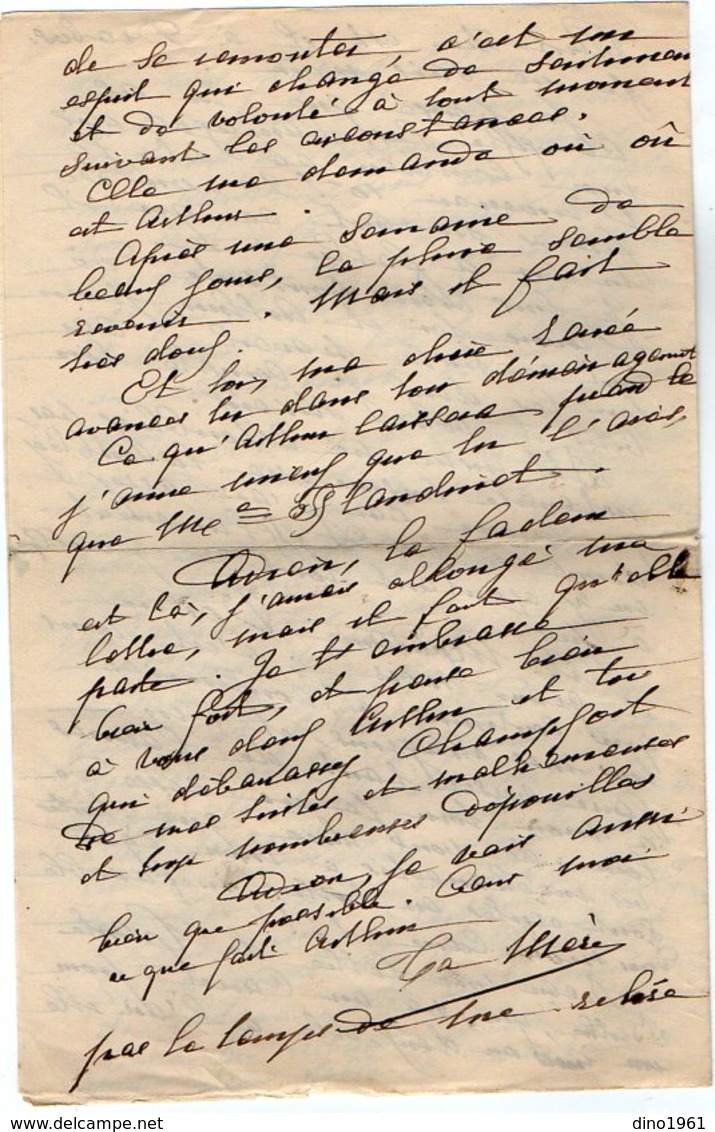 de se remonter, c'est un
esprit qui change de sentiment
et de volonté à tout moment
suivant les circonstances.
Elle me demande où où
est Arthur.
Après une semaine de
beaux jours, la pluie semble
revenir. Mais il fait
très doux.
Et toi, ma chère
avances tu dans ton déménagement
Ce qu'Arthur laissera prends le
j'aime mieux que tu l'aies,
que Me Blandinot.
Adieu, le facteur
est là, j'aurais allongé ma
lettre, mais il faut qu'elle
parte. Je t'embrasse
bien fort, et pense bien
à vous deux Arthur et toi
qui débarassez Champfort
de mes tristes et malheureuses
et trop nombreuses dépouilles
Adieu, je vais aussi
bien que possible. Dis moi
ce que fait Arthur
Ta Mère
pas le temps de me relire
dino1961